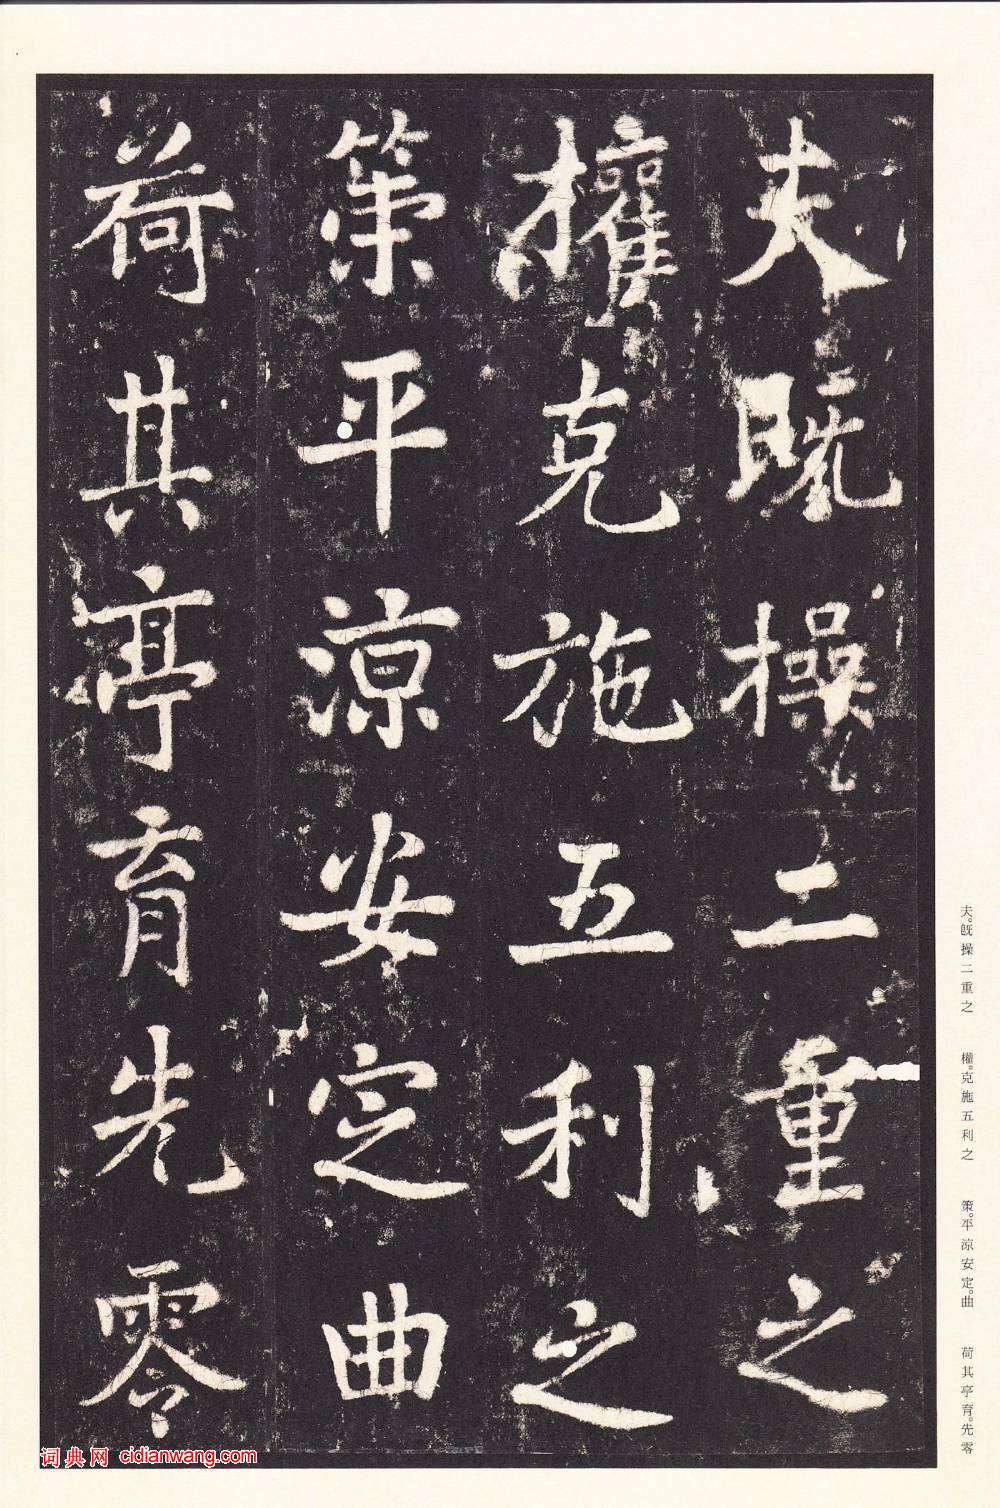 夫既操二重之
權克施五利之
策平涼安定曲
荷其亭育先零
夫。既操二重之 權。克施五利之 策。平涼安定。曲 荷其亭育。先零
词典网 cidianwang.com